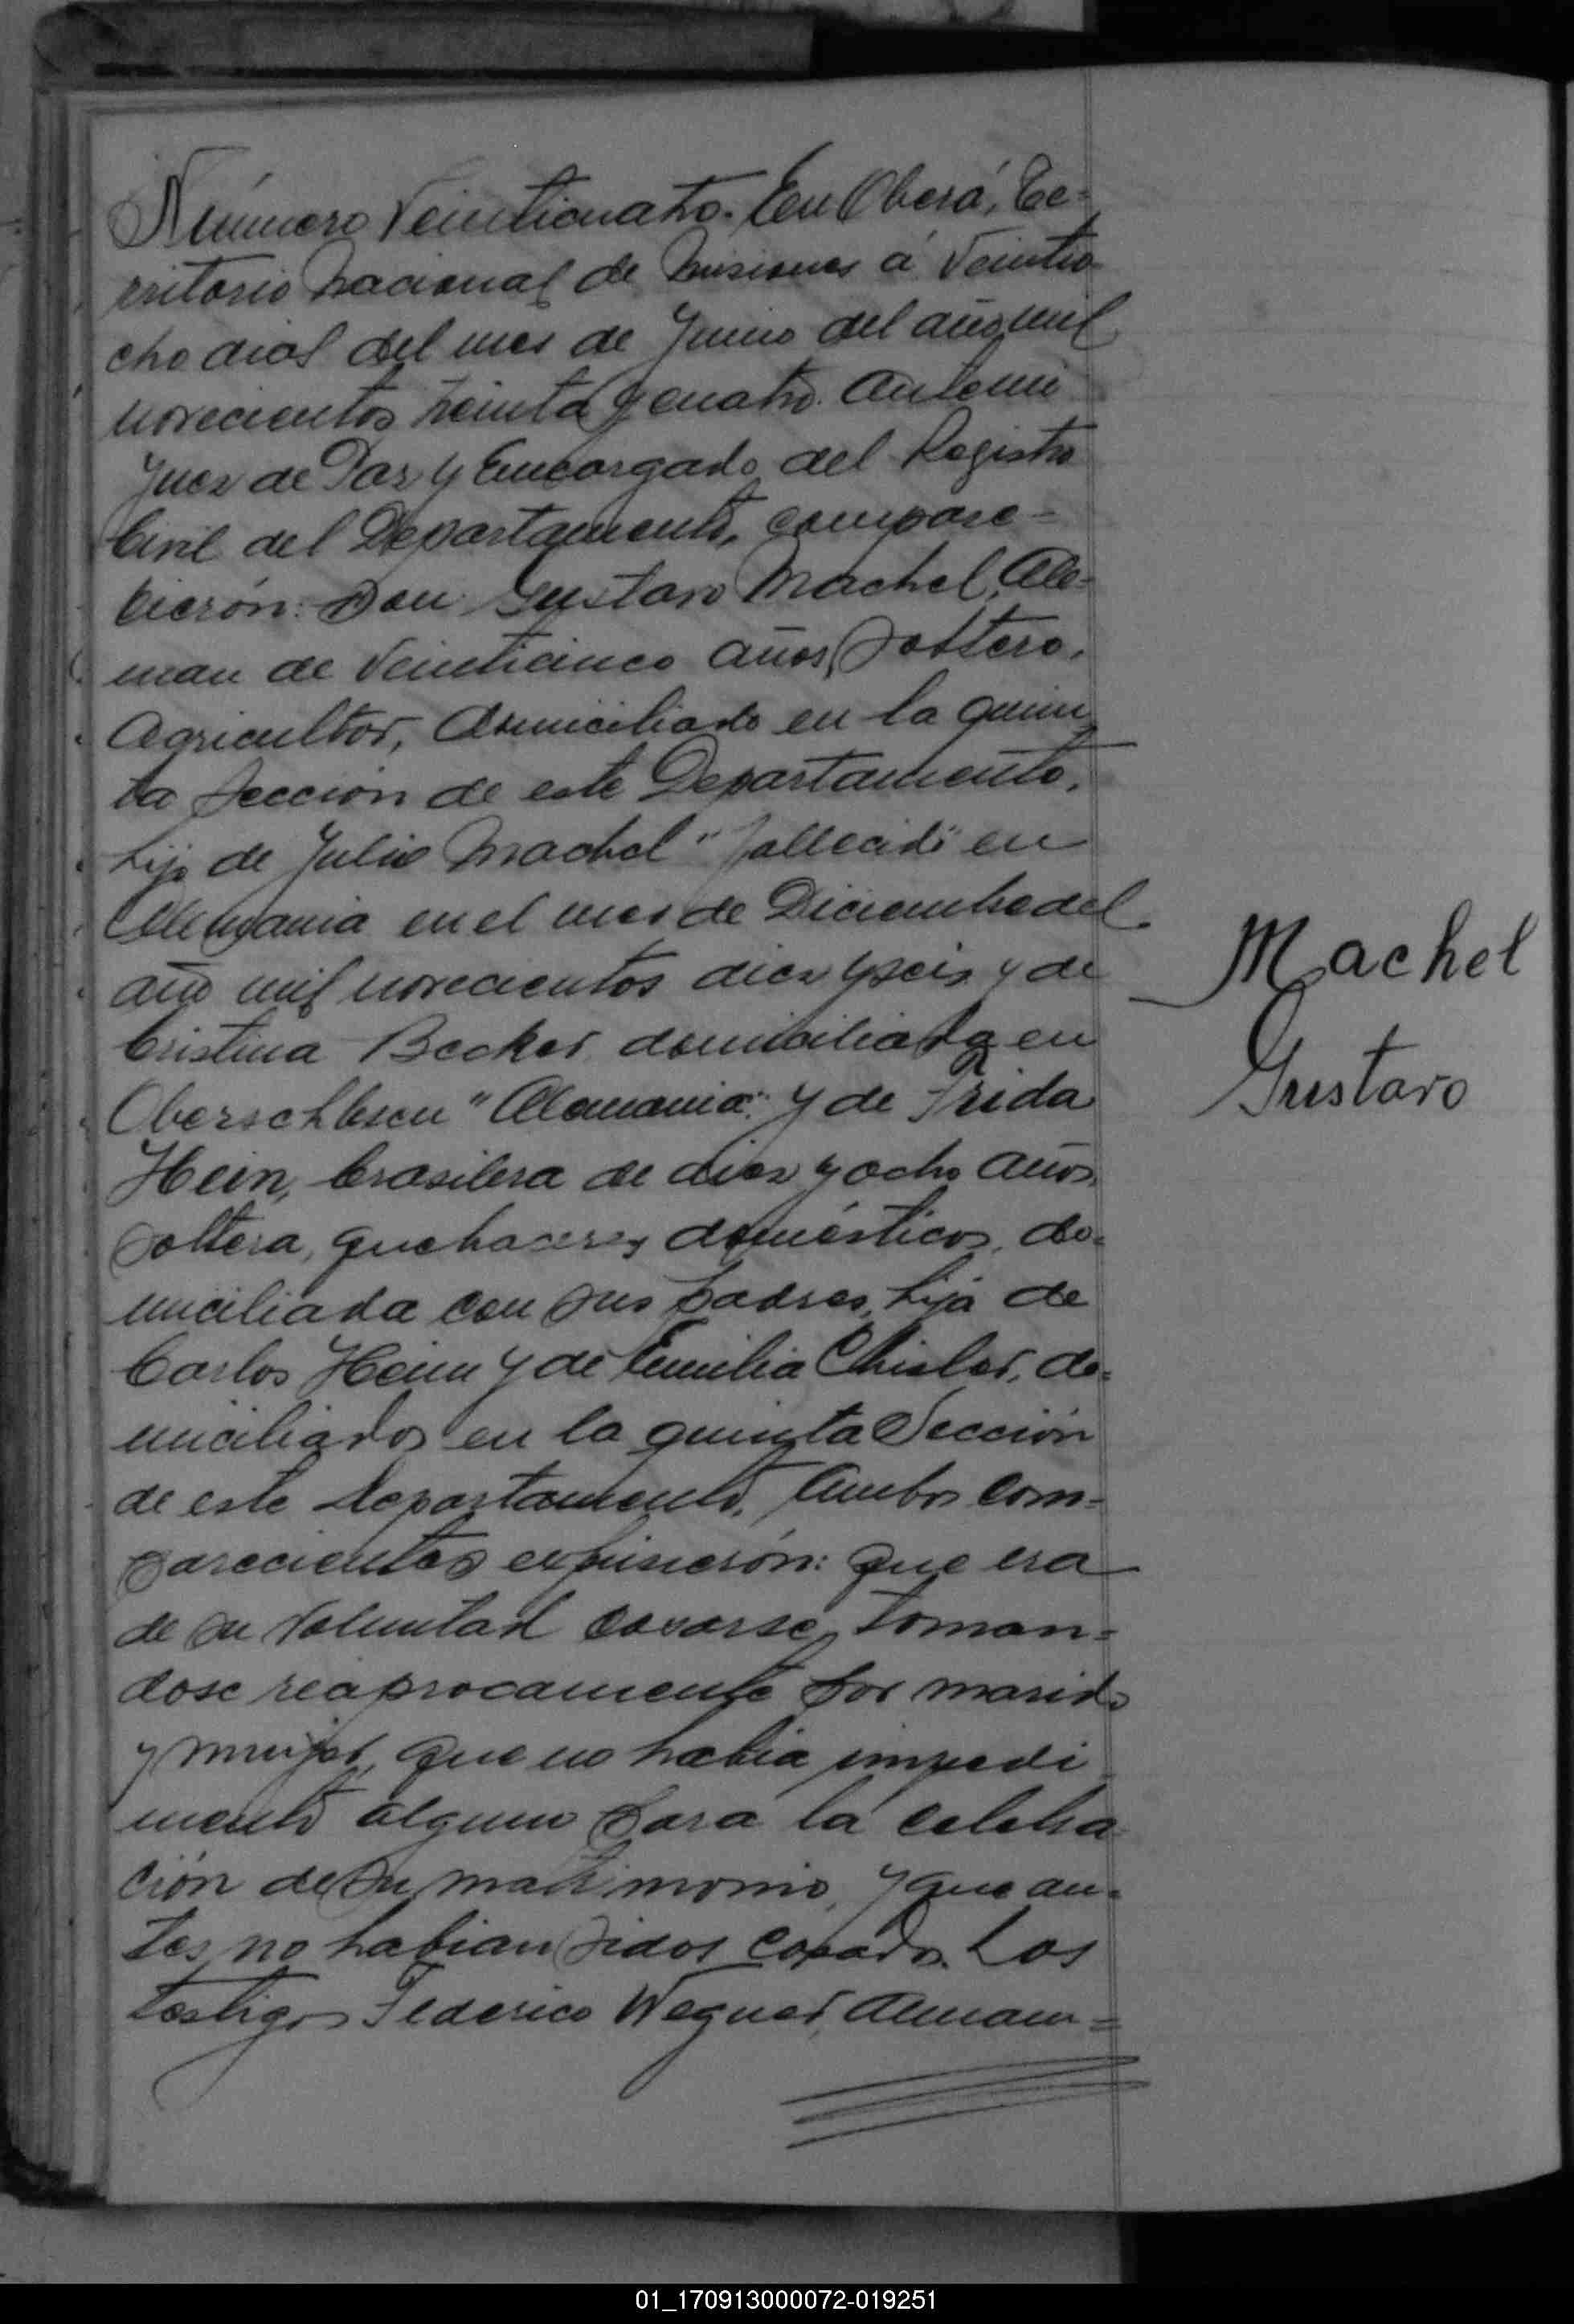 Número Veinticuatro. En Oberá, Te-
rritorio Nacional de Misiones á Veintio-
cho dias del mes de Junio del año mil
novecientos treinta y cuatro. Ante mi
Juez de Paz y Encargado del Registro
Civil del Departamento, compare-
cierón: Don Gustavo Machel, Ale-
man de Veinticinco años, Soltero,
Agricultor, domiciliado en la quin-
ta Sección de este Departamento,
hijo de Julio Machel "fallecido" en
Alemania en el mes de Diciembre del
año mil novecientos diez y seis y de
Cristina Becker domiciliada en
"Alemania" y de Frida
Hein, brasilera de diez y ocho años,
Soltera, quehaceres domésticos, do-
miciliada con sus padres, hija de
Carlos Hein y de Emilia do-
miciliados en la quinta Sección
de este Departamento. Ambos com-
parecientes expusierón: que era
de su voluntad casarse, toman-
dose reciprocamente por marido
y mujer, que no habia impedi
mento alguno para la celebra
ción de su matrimonio, y que an-
tes no habian sidos casados. Los
testigos Federico Wegner, Aleman=
Machel
Gustavo
01_170913000072-019251